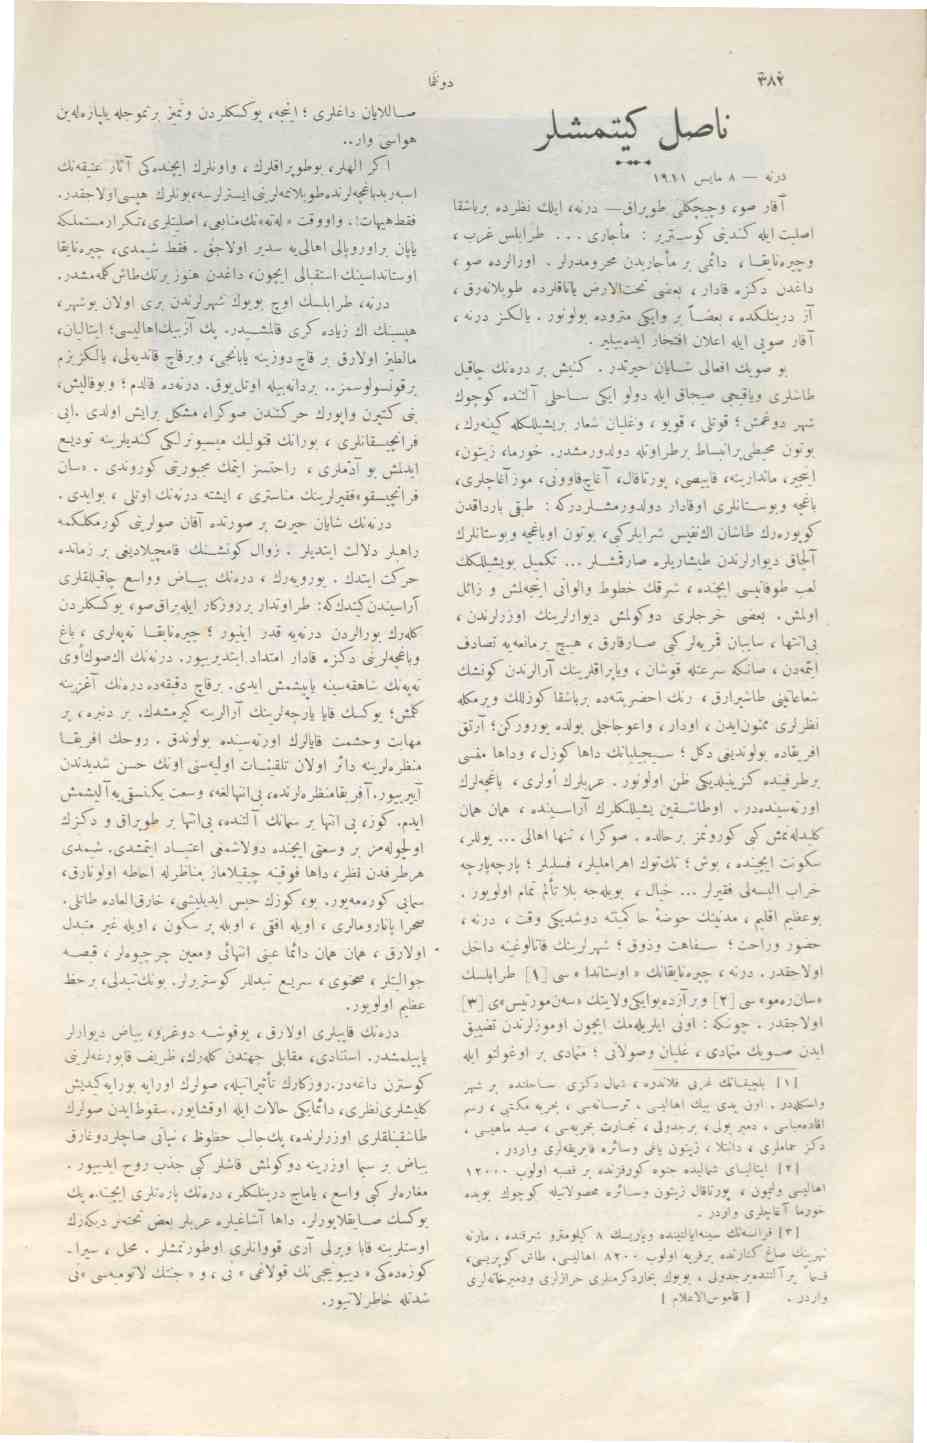 ٣٨٢
دونما
ناصل كيتمشلر
درنه — ٨ مايس ١٩١١
آقار صو، وچيچكلی طوپراق— درنه، ايلك نظرده برباشقا
اصليت ايله كندينی كوستريز : مأجاری ... طرابلس غرب ،
وچيره‌نايقا ، دائمی بر مأجاريدن محرومدرلر . اورالرده صو ،
داغدن دكزه قادار ، بعضی تحت‌الارض ياتاقلرده طوپلانه‌رق ،
آز درينلكده ، بعضاً بر وايكی متروده بولونور . يالكز درنه ،
آقار صويی ايله اعلان افتخار ايده‌بيلير .
بو صويك افعالی شايان حيرتدر . كنيش بر دره‌نك چاقيل
طاشلری وياقيجی صيجاق ايله دولو ايكی ساحلی آلتنده كوچوك
شهر دوغمش ؛ قوتلی ، قويو ، وغليان شعار بريشيللكله كينه‌رك ،
بوتون محيطی پرانبساط برطراوتله دولدورمشدر. خورما، زيتون،
اينجير، ماندارينه، قاييصی، پورتاقال، آغاچ‌قاوونی، موز آغاجلری،
باغچه وبوستانلری اوقادار دولدورمشلردركه : طبقی بارداقدن
كوپوره‌رك طاشان اك‌نفيس شرابلر‌كبی، بوتون اوباغچه وبوستانلرك
آلچاق ديوارلرندن طيشاريلره صارقمشلر ... تكميل بويشيللكك
لعب طوفانيسی ايچنده ، شرقك خطوط والوانی اينجه‌لمش و زائل
اولمش . بعضی خرجلری دوكولمش ديوارلرينك اوزرلرندن ،
بی‌انتها ، سايبان قمريه‌لر كبی صارقارق ، هيچ برمانعه‌يه تصادف
ايتمه‌دن ، صانكه سرعتله قوشان ، وياپراقلرينك آرالرندن كونشك
شعاعاتينی طاشيرارق ، رنك احضريته‌ده برباشقا كوزللك ويرمكله
نظرلری ممنون‌ايدن ، اودار ، واعوجاجلی يولده يورورکن؛ آرتق
افريقاده بولونديغی دكل ؛ سيجيليانك داها كوزل ، وداها مفسی
برطرفينده كزينيلديكی ظن اولونور . عربلرك أولری ، باغچه‌لرك
اورته‌سينده‌در . اوطاشقين يشيللكلرك آراسينده ، همان همان
كليدله‌نمش كبی كورونمز بر حالده . صوكرا ، تنها اهالی ... يوللر ،
سكونت ايچينده ، بوش ؛ تك‌توك اهراملیلر ، فسليلر ؛ پارچه‌پارچه
خراب البسه‌لی فقيرلر ... خيال ، بويله‌جه بلا تألم تمام اولويور .
بوعظيم اقليم ، مدنيتك حوضهٔ حاكميتنه دوشديكی وقت ، درنه ،
حضور وراحت ؛ سفاهت وذوق ؛ شهرلرينك قاتالوغينه داخل
اولاجقدر . درنه ، چيره‌نايقانك « اوستاندا » سی [١] طرابلسك
«سان‌ره‌مو» سی [٢] وبر آزده‌بوايكی‌ولايتك «سه‌ن‌موريس»ی [٣]
اولاجقدر . چونكه : اونی ايلريله‌مك ايچون اوموزلرندن تضييق
ايدن صويك متمادی ، غليان وصولانی ؛ متمادی بر اوغولتو ايله
[١] بلچيقانك غربی فلاندره ، شمال دكزی ساحلنده بر شهر
واسكله‌در . اون يدی بيك اهاليسی ، ترسانه‌سی ، بحريه مكتبی ، رسم
اقاده‌مياسی ، دمير يولی ، برجدولی ، تجارت بحريه‌سی ، صيد ماهيسی ،
دكز حماملری ، دانتلا ، زيتون ياغی وسائره فابريقه‌لری واردر .
[٢] ايتاليای شماليده جنوه كورفزنده بر قصبه اولوب ١٢٠٠٠
اهاليسی وليمون ، پورتاقال زيتون وسائره محصولاتيله كوچوك بويده
خورما آغاچلری واردر .
[٣] فرانسه‌نك سينه‌ايالتينده وپاريسك ٨ كيلومترو شرقنده ، مارنه
نهرينك صاغ كنارنده برقريه اولوب ٨٢٠٠ اهاليسی، طاش كوپريسی،
قسماً يرآلتنده‌برجدولی ، بويوك بخاردكرمنلری حرازلری ودميرخانه‌لری
واردر . [ قاموس‌الاعلام ]
صاللايان داغلری ؛ اينجه، يوكسكلردن ونميز برتموجله ياپازه‌له‌ين
هواسی وار..
اكر الهلر، بوطوپراقلرك ، واونلرك ايچنده‌كی آثار عتيقه‌نك
اسپه‌ريدباغچه‌لرنده‌طوپلانمه‌لرينی ايسترلرسه،بونلرك هپسی‌اولاجقدر.
فقط‌هيهات!. واووقت « له‌ته»نك‌منابعی، اصليتلری،تكرارمستملكه
ياپان براوروپالی اهالی‌يه سدير اولاجق . فقط شيمدی، چيره‌نايقا
اوستانداسينك استقبالی ايچون، داغدن هنوز برتك‌طاش كله‌مشدر.
درنه، طرابلسك اوچ بويوك شهرلرندن بری اولان بوشهر،
هپسينك اك زياده كری قالمشدر. يك آزبيك‌اهاليسی؛ ايتاليان،
مالطيز اولارق بر قاچ دوزينه يابانجی، وبرقاچ قانديه‌لی، يالكزبزم
برقونسولوسمز.. بردانه‌بيله اوتل‌يوق. درنه‌ده قالدم ؛ وبوقاليش،
بنی كتيرن واپورك حركتندن صوكرا، مشكل برايش اولدی .ايی
فرانچيسقانلری ، بورانك قتوليك ميسيونرلكی كنديلرينه توديع
ايدلمش بو آدملری ، راحتسز ايتمك مجبوريتی كوروندی . «سان
فرانچيسقو»فقيرلرينك مناستری ، ايشته درنه‌نك اوتلی ، بوايدی .
درنه‌نك شايان حيرت بر صورتده آقان صولرينی كورمكلكمه
راهبلر دلالت ايتديلر . زوال كونشنك قامچيلاديغی بر زمانده
حركت ايتدك . يورويه‌رك ، دره‌نك بياض وواسع چاقيللقلری
آراسيندن‌كيتدك‌كه: طراوتدار برروزكار ايله‌براق‌صو، يوكسكلردن
كله‌رك بورالردن درنه‌يه قدر اينيور ؛ چيره‌نايقا تپه‌لری ، باغ
وباغچه‌لرينی دكزه قادار امتداد ايتديرييور. درنه‌نك اك‌صوك‌أوی
تپه‌نك شاهقه‌سينه ياپيشمش ايدی. برقاچ دقيقه‌ده دره‌نك آغزينه
كلمش؛ يوكسك قايا پارچه‌لرينك آرالرينه كيرمشدك. بر دنبره، پر
مهابت وحشمت قايالرك اورته‌سنده بولوندق . روحك افريقا
منظره‌لرينه دائر اولان تلقينات اوليه‌سنی اونك حسن شديدندن
آييرييور. آفريقامنظره‌لرنده، بی‌انتهالغه، وسعت يكنسقی‌يه آليشمش
ايدم. كوز، بی انتها بر سمانك آلتنده، بی‌انتها بر طوپراق و دكزك
اولچوله‌مز بر وسعتی ايچنده دولاشمغی اعتياد ايتمشدی. شيمدی
هرطرفدن نظر، داها فوقينه چيقيلاماز مناظرله احاطه اولونارق،
سمايی كوره‌مه‌يور. بو، كوزك حبس ايديليشی، خارق‌العاده طاتلی.
صحرا پانارومالری ، اويله افقی ، اويله پر سكون ، اويله غير متبدل
اولارق ، همان همان دائما عينی انتهائی ومعين چرچيوه‌لر ، قبصه
جوالیتلر ، محتوی ، سريع تبدللر كوستريرلر. بونك‌تبدلی، برحظ
عظيم اولويور.
دره‌نك قاييلری اولارق ، بوقوشه دوغرو، بياض ديوارلر
ياپيلمشدر. استنادی، مقابلی جهتدن كله‌رك، ظريف قابورغه‌لرينی
كوسترن داغه‌در.روزكارك تأثيراتيله، صولرك اورايه بورايه‌كيديش
كليشلری‌نظری، دائمایکی حالات ايله اوقشايور. سقوط‌ايدن صولرك
طاشقينلقلری اوزرلرنده، پك‌جالب حظوظ ، نباتی صاچلردوغارق
بياض بر سما اوزرينه دوكولمش قاشلر كبی جذب روح ايدييور .
مغاره‌لر كبی واسع ، يامايج درينلكلر، دره‌نك ياره‌تلری ايچنه يك
يوكسك صايقلايورلر. داها آشاغيلره عربلر بعض تخته‌لر ديكه‌رك
اوستلرينه قابا ويرلی آری قووانلری اوطورتمشلر . محل ، سيرا-
كوزه‌ده‌كی « ديونيجی‌نك قولاغی » نی ، و « جنتك لاتوميه‌سی »نی
شدتله خاطرلاتييور.